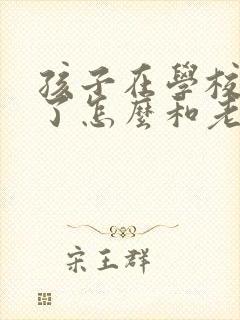 孩子在學校
了怎麼和老
宋王群